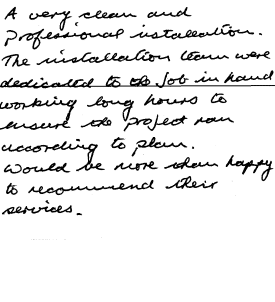 A very clean and
professional installation.
The installation team were
dedicated to the job in hand
working long hours to
ensure the project ran
according to plan.
Would be more than happy
to recommend their
services.